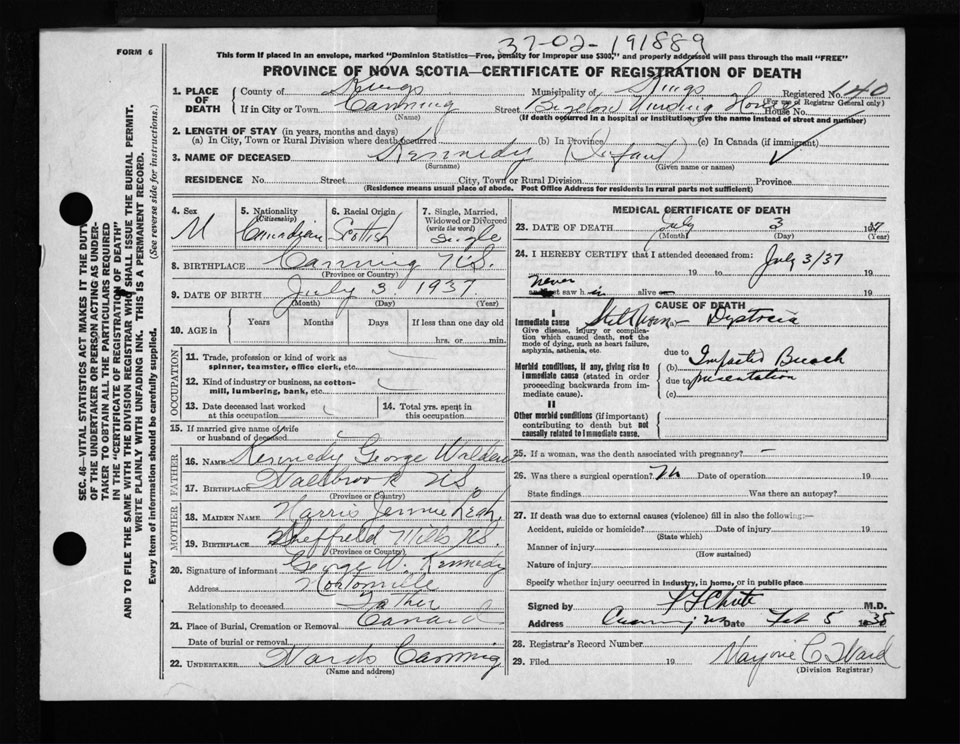 37-02-191889
FORM 6
This form if placed in an envelope, marked "Dominion Statistics—Free, penalty for improper use $300," and properly addressed will pass through the mail "FREE"
PROVINCE OF NOVA SCOTIA—CERTIFICATE OF REGISTRATION OF DEATH
1. PLACE OF DEATH
County of Kings Municipality of Kings Registered No. 40
(For use of Registrar General only)
If in City or Town Canning Street Bigelow Nursing Home House No.
(Name) (If death occurred in a hospital or institution, give the name instead of street and number)
2. LENGTH OF STAY (in years, months and days)
(a) In City, Town or Rural Division where death occurred (b) In Province (c) In Canada (if immigrant)
3. NAME OF DECEASED Kennedy (Infant)
(Surname) (Given name or names)
RESIDENCE No. Street City, Town or Rural Division Province
(Residence means usual place of abode. Post Office Address for residents in rural parts not sufficient)
4. Sex M
5. Nationality (Citizenship) Canadian
6. Racial Origin Scottish
7. Single, Married, Widowed or Divorced (write the word) Single
8. BIRTHPLACE Canning N.S.
(Province or Country)
9. DATE OF BIRTH July 3 1937
(Month) (Day) (Year)
10. AGE in Years Months Days If less than one day old
hrs. or min.
OCCUPATION
11. Trade, profession or kind of work as spinner, teamster, office clerk, etc.
12. Kind of industry or business, as cotton-mill, lumbering, bank, etc.
13. Date deceased last worked at this occupation
14. Total yrs. spent in this occupation
15. If married give name of wife or husband of deceased
FATHER
16. NAME Kennedy George Walden
17. BIRTHPLACE Wallbrook N.S.
(Province or Country)
MOTHER
18. MAIDEN NAME Harris Jennie Leah
19. BIRTHPLACE Sheffield Mills N.S.
(Province or Country)
20. Signature of informant George W. Kennedy
Address
Relationship to deceased Father
21. Place of Burial, Cremation or Removal Canard
Date of burial or removal
22. UNDERTAKER Wards Canning
(Name and address)
MEDICAL CERTIFICATE OF DEATH
23. DATE OF DEATH July 3 1937
(Month) (Day) (Year)
24. I HEREBY CERTIFY that I attended deceased from: July 3/37
19 to 19
never
and last saw h im alive on 19
CAUSE OF DEATH
I
Immediate cause Stillborn - Dystocia
Give disease, injury or complication which caused death, not the mode of dying, such as heart failure, asphyxia, asthenia, etc.
due to
Morbid conditions, if any, giving rise to immediate cause (stated in order proceeding backwards from immediate cause).
(b) Impacted Breech
due to presentation
(c)
II
Other morbid conditions (if important) contributing to death but not causally related to immediate cause.
25. If a woman, was the death associated with pregnancy?
26. Was there a surgical operation? No Date of operation 19
State findings Was there an autopsy?
27. If death was due to external causes (violence) fill in also the following:—
Accident, suicide or homicide? Date of injury 19
(State which)
Manner of injury
(How sustained)
Nature of injury
Specify whether injury occurred in industry, in home, or in public place
Signed by F F Chute M.D.
Address Canning NS Date Feb 5 1938
28. Registrar's Record Number
29. Filed 19 Marjorie C. Ward
(Division Registrar)
SEC. 46—VITAL STATISTICS ACT MAKES IT THE DUTY
OF THE UNDERTAKER OR PERSON ACTING AS UNDER-
TAKER TO OBTAIN ALL THE PARTICULARS REQUIRED
IN THE "CERTIFICATE OF REGISTRATION OF DEATH"
AND TO FILE THE SAME WITH THE DIVISION REGISTRAR WHO SHALL ISSUE THE BURIAL PERMIT.
WRITE PLAINLY WITH UNFADING INK. THIS IS A PERMANENT RECORD.
Every item of information should be carefully supplied. (See reverse side for instructions.)